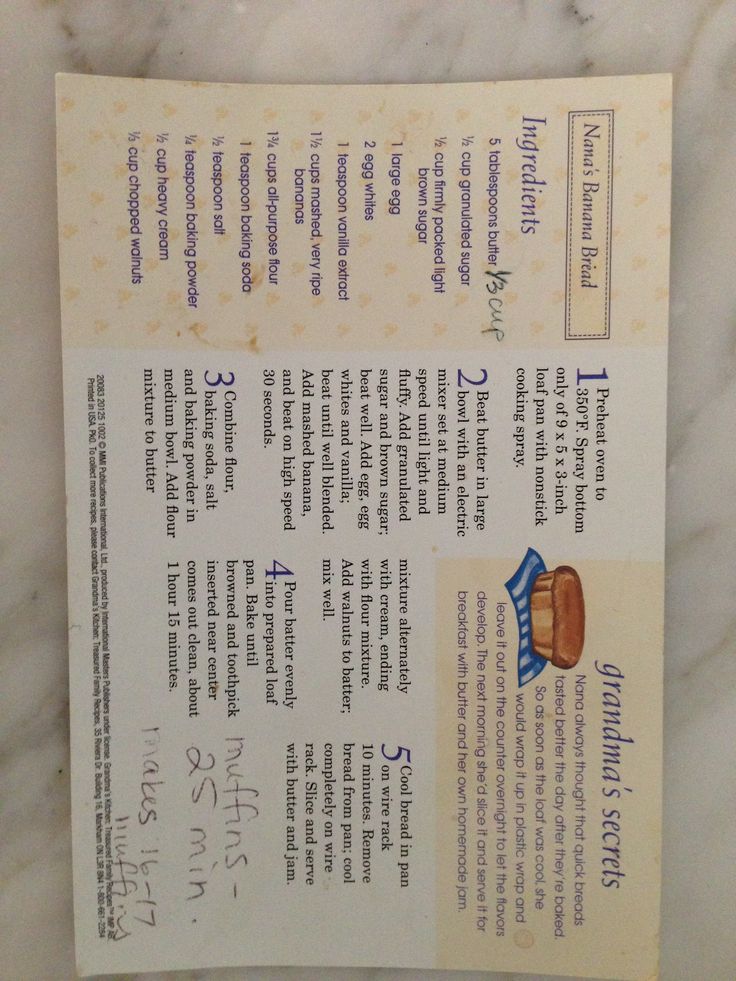 Nana's Banana Bread
Ingredients
5 tablespoons butter 1/3 cup
½ cup granulated sugar
½ cup firmly packed light
brown sugar
1 large egg
2 egg whites
1 teaspoon vanilla extract
1½ cups mashed, very ripe
bananas
1¾ cups all-purpose flour
1 teaspoon baking soda
½ teaspoon salt
¼ teaspoon baking powder
½ cup heavy cream
⅓ cup chopped walnuts
1 Preheat oven to
350°F. Spray bottom
only of 9 x 5 x 3-inch
loaf pan with nonstick
cooking spray.
2 Beat butter in large
bowl with an electric
mixer set at medium
speed until light and
fluffy. Add granulated
sugar and brown sugar;
beat well. Add egg, egg
whites and vanilla;
beat until well blended.
Add mashed banana,
and beat on high speed
30 seconds.
3 Combine flour,
baking soda, salt
and baking powder in
medium bowl. Add flour
mixture to butter
mixture alternately
with cream, ending
with flour mixture.
Add walnuts to batter;
mix well.
4 Pour batter evenly
into prepared loaf
pan. Bake until
browned and toothpick
inserted near center
comes out clean, about
1 hour 15 minutes.
5 Cool bread in pan
on wire rack
10 minutes. Remove
bread from pan; cool
completely on wire
rack. Slice and serve
with butter and jam.
muffins -
25 min.
makes 16-17
muffins
grandma's secrets
Nana always thought that quick breads
tasted better the day after they're baked.
So as soon as the loaf was cool, she
would wrap it up in plastic wrap and
leave it out on the counter overnight to let the flavors
develop. The next morning she'd slice it and serve it for
breakfast with butter and her own homemade jam.
20083 20125 1002 © MMI Publications International, Ltd., produced by International Masters Publishers under license. Grandma's Kitchen: Treasured Family Recipes™ IMP AB
Printed in USA. Pk0. To collect more recipes, please contact Grandma's Kitchen: Treasured Family Recipes, 35 Riviera Dr. Building 16, Markham ON L3R 8N4 1-800-661-2284